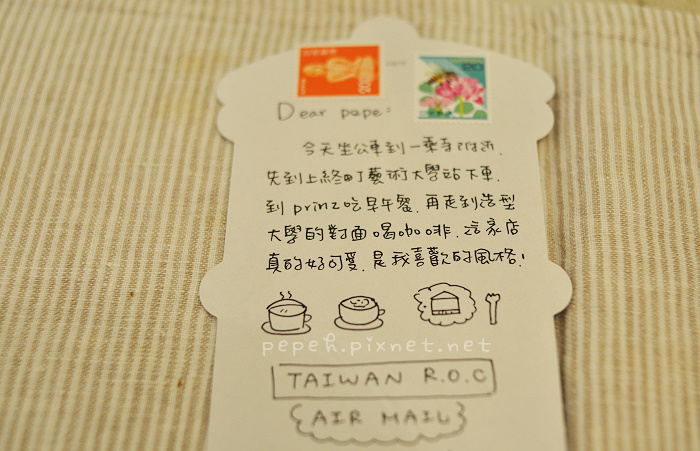 Dear pepe:
今天坐公車到一乗寺附近.
先到上終町藝術大學站下車.
到prinz吃早午餐.再走到造型
大學的對面喝咖啡.這家店
真的好可愛.是我喜歡的風格!
pepeh.pixnet.net
TAIWAN R.O.C
AIR MAIL